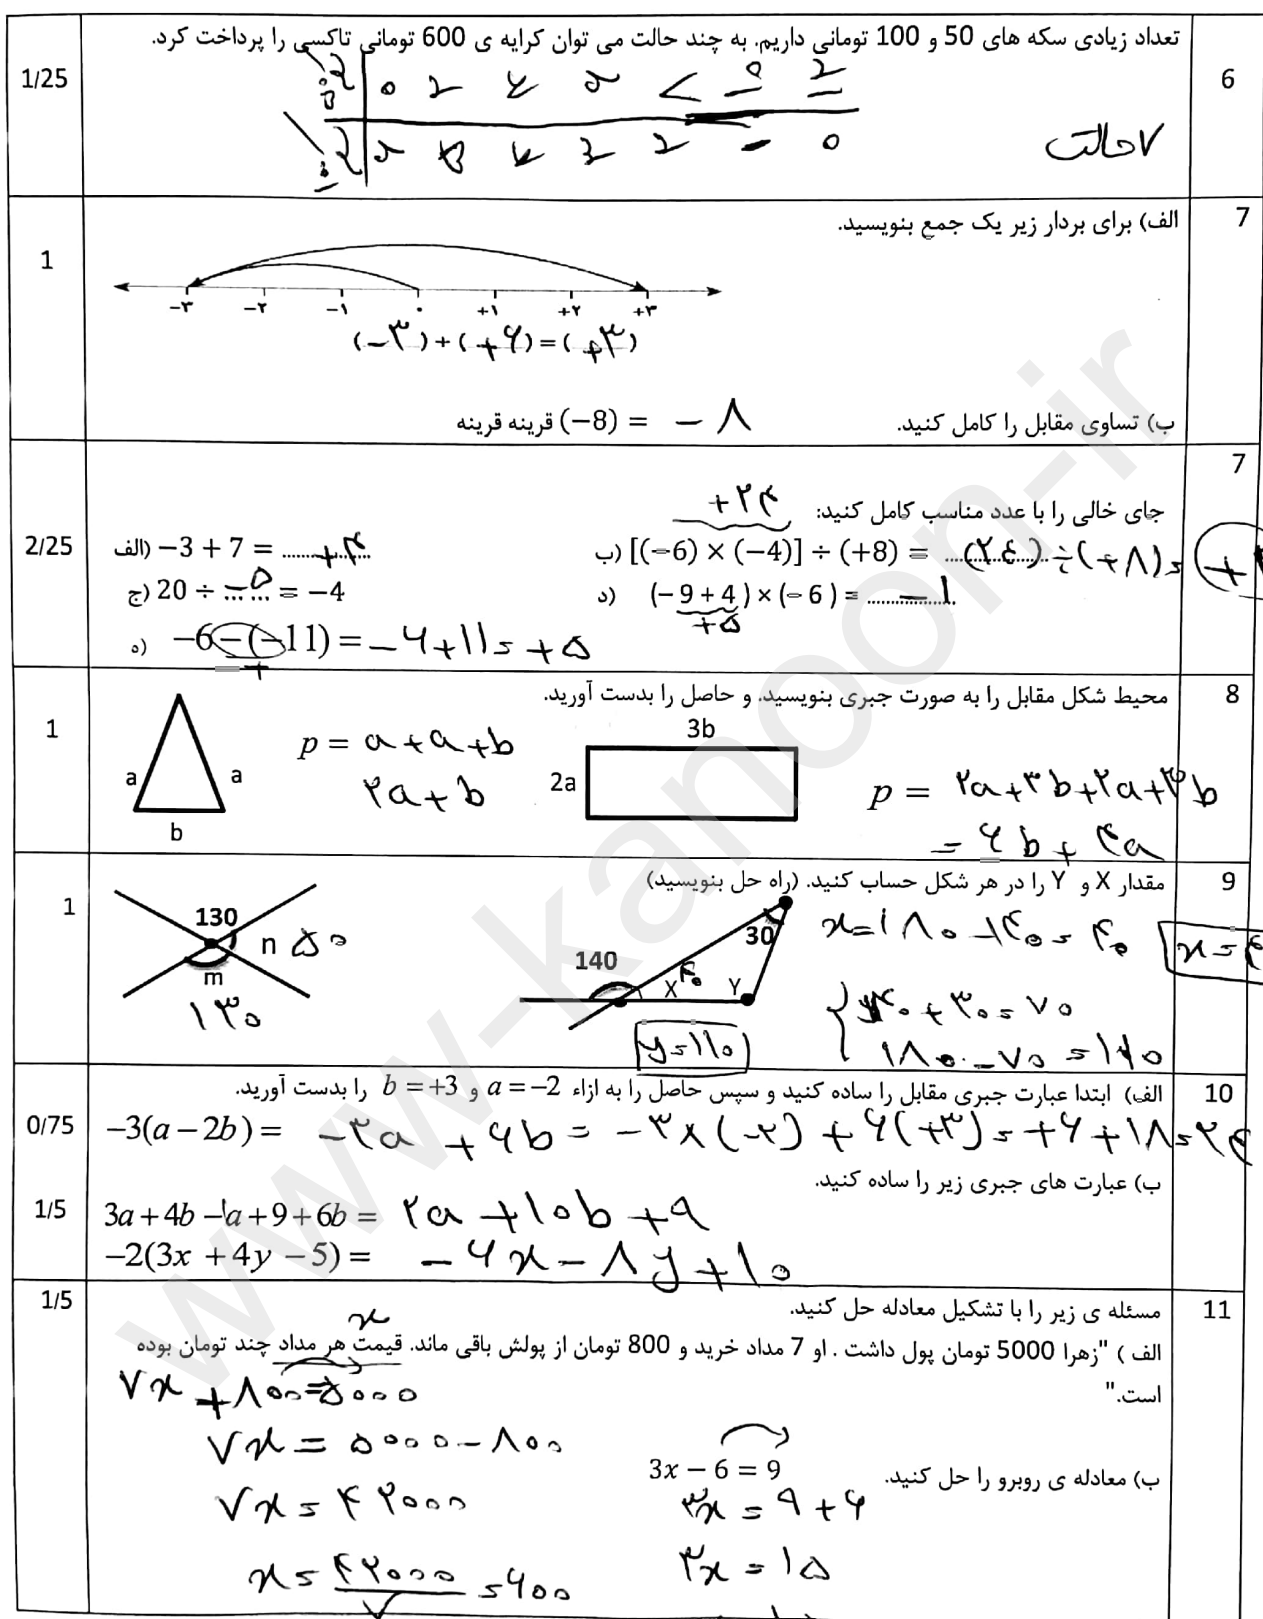 6
تعداد زیادی سکه های 50 و 100 تومانی داریم. به چند حالت می توان کرایه ی 600 تومانی تاکسی را پرداخت کرد.
1/25
۷ حالت
7
الف) برای بردار زیر یک جمع بنویسید.
1
−۳ −۲ −۱ ۰ +۱ +۲ +۳
(−۳)+(+۶)=(+۳)
ب) تساوی مقابل را کامل کنید.
قرینه قرینه (−8) = −۸
7
جای خالی را با عدد مناسب کامل کنید:
+۲۴
2/25
الف) −3 + 7 = ....+۴....
ب) [(−6) × (−4)] ÷ (+8) = ...(۲٤)...÷(+۸)=
ج) 20 ÷ ...−۵... = −4
د) (−9 + 4) × (−6) = ....−۱....
+۵
ه) −6 − (−11) = −۶+۱۱= +۵
+
8
محیط شکل مقابل را به صورت جبری بنویسید. و حاصل را بدست آورید.
1
a a b
p = a+a+b
۲a+b
3b
2a
p = ۲a+۳b+۲a+۳b
= ۶b+۴a
9
مقدار X و Y را در هر شکل حساب کنید. (راه حل بنویسید)
1
130
n ۵۰
m
۱۳۰
30
140
X ۴۰ Y
y=۱۱۰
x=۱۸۰−۱۴۰=۴۰
۴۰+۳۰=۷۰
۱۸۰−۷۰=۱۱۰
10
الف) ابتدا عبارت جبری مقابل را ساده کنید و سپس حاصل را به ازاء a = −2 و b = +3 را بدست آورید.
0/75
−3(a − 2b) = −۳a + ۶b = −۳×(−۲) + ۶(+۳) = +۶+۱۸=۲۴
ب) عبارت های جبری زیر را ساده کنید.
1/5
3a + 4b − a + 9 + 6b = ۲a +۱۰b +۹
−2(3x + 4y − 5) = −۶x − ۸y +۱۰
11
مسئله ی زیر را با تشکیل معادله حل کنید.
1/5
x
الف ) "زهرا 5000 تومان پول داشت . او 7 مداد خرید و 800 تومان از پولش باقی ماند. قیمت هر مداد چند تومان بوده
است."
۷x +۸۰۰=۵۰۰۰
۷x = ۵۰۰۰−۸۰۰
۷x = ۴۲۰۰۰
x = ۴۲۰۰۰/۷ = ۶۰۰
ب) معادله ی روبرو را حل کنید.
3x − 6 = 9
۳x = ۹+۶
۳x = ۱۵
www-kanoon-ir